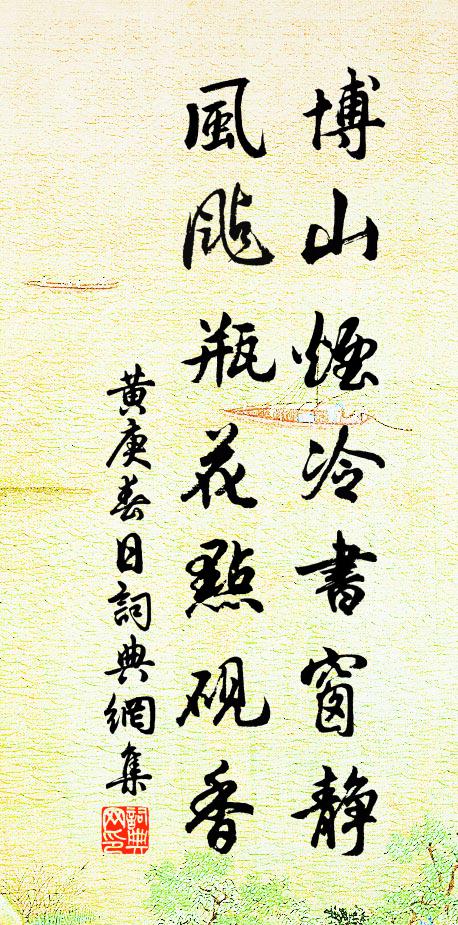 博山煙冷書窗靜
風颭瓶花點硯香
黄庚春日詞典網集
詞典网印